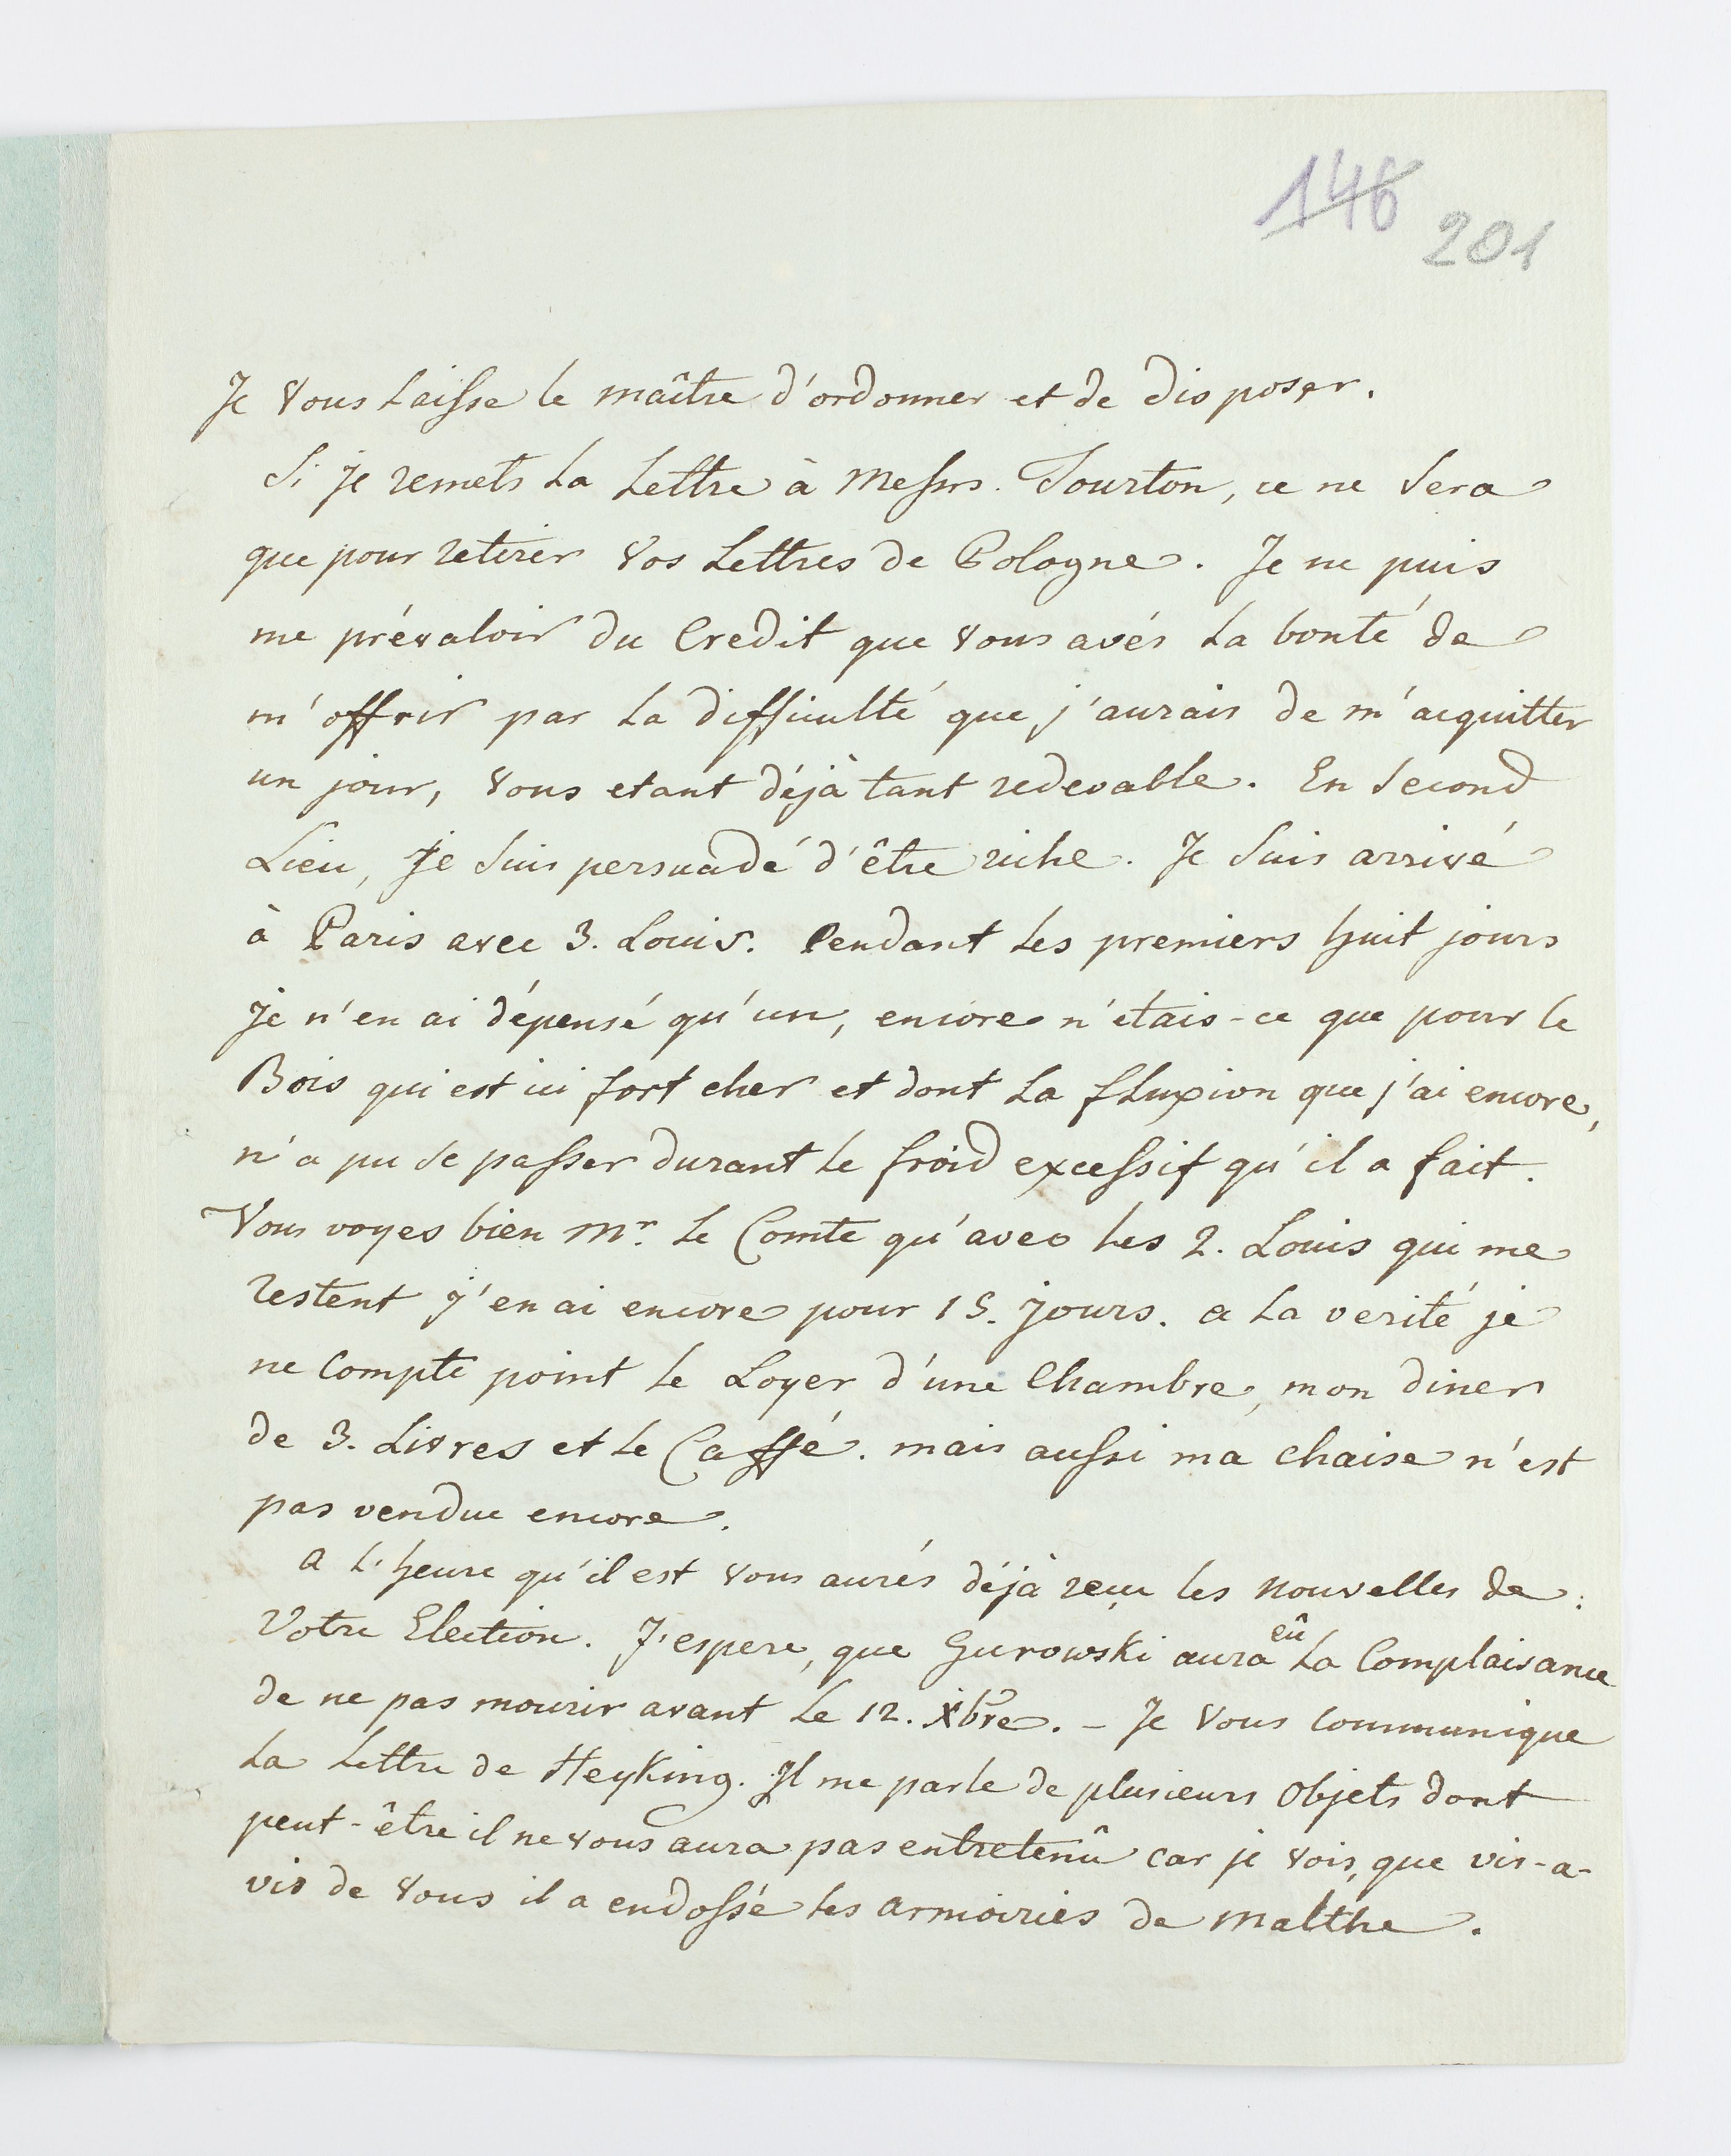 146
201
Je vous laisse le maître d'ordonner et de disposer.
Si je remets la lettre à Messrs. Tourton, ce ne sera
que pour retirer vos lettres de Pologne. Je ne puis
me prévaloir du Credit que vous avés la bonté de
m'offrir par la difficulté que j'aurais de m'acquitter
un jour, vous etant déjà tant redevable. En second
Lieu, je suis persuadé d'être riche. Je suis arrivé
à Paris avec 3. Louis. Pendant les premiers huit jours
je n'en ai dépensé qu'un, encore n'étais-ce que pour le
Bois qui est ici fort cher et dont la fluxion que j'ai encore,
n'a pu se passer durant le froid excessif qu'il a fait.
Vous voyes bien Mr. le Comte qu'avec les 2. Louis qui me
restent j'en ai encore pour 15. jours. a la verité je
ne compte point le Loyer d'une Chambre, mon diner
de 3. Livres et le Caffé. mais aussi ma chaise n'est
pas vendue encore.
a l'heure qu'il est vous aurés déjà reçu les nouvelles de
Votre Election. J'espere, que Gurowski aura eû la Complaisance
de ne pas mourir avant le 12. Xbre. - Je vous communique
la lettre de Heyking. Il me parle de plusieurs objets dont
peut-être il ne vous aura pas entretenû car je vois, que vis-a-
vis de vous il a endossé les armoiries de malthe.